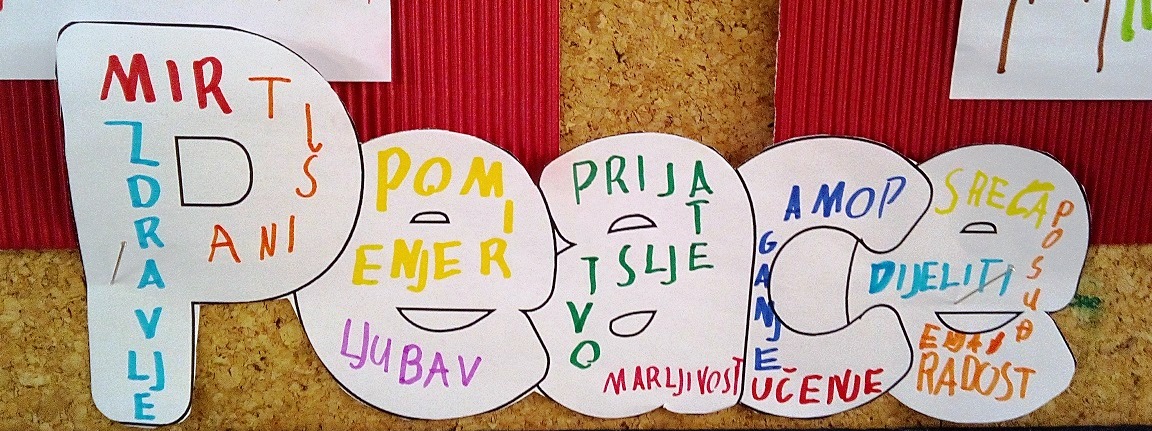 MIR
TIŠINA
ZDRAVLJE
POMIRENJE
LJUBAV
PRIJATELJSTVO
MARLJIVOST
POMAGANJE
UČENJE
SREĆA
DIJELITI
RADOST